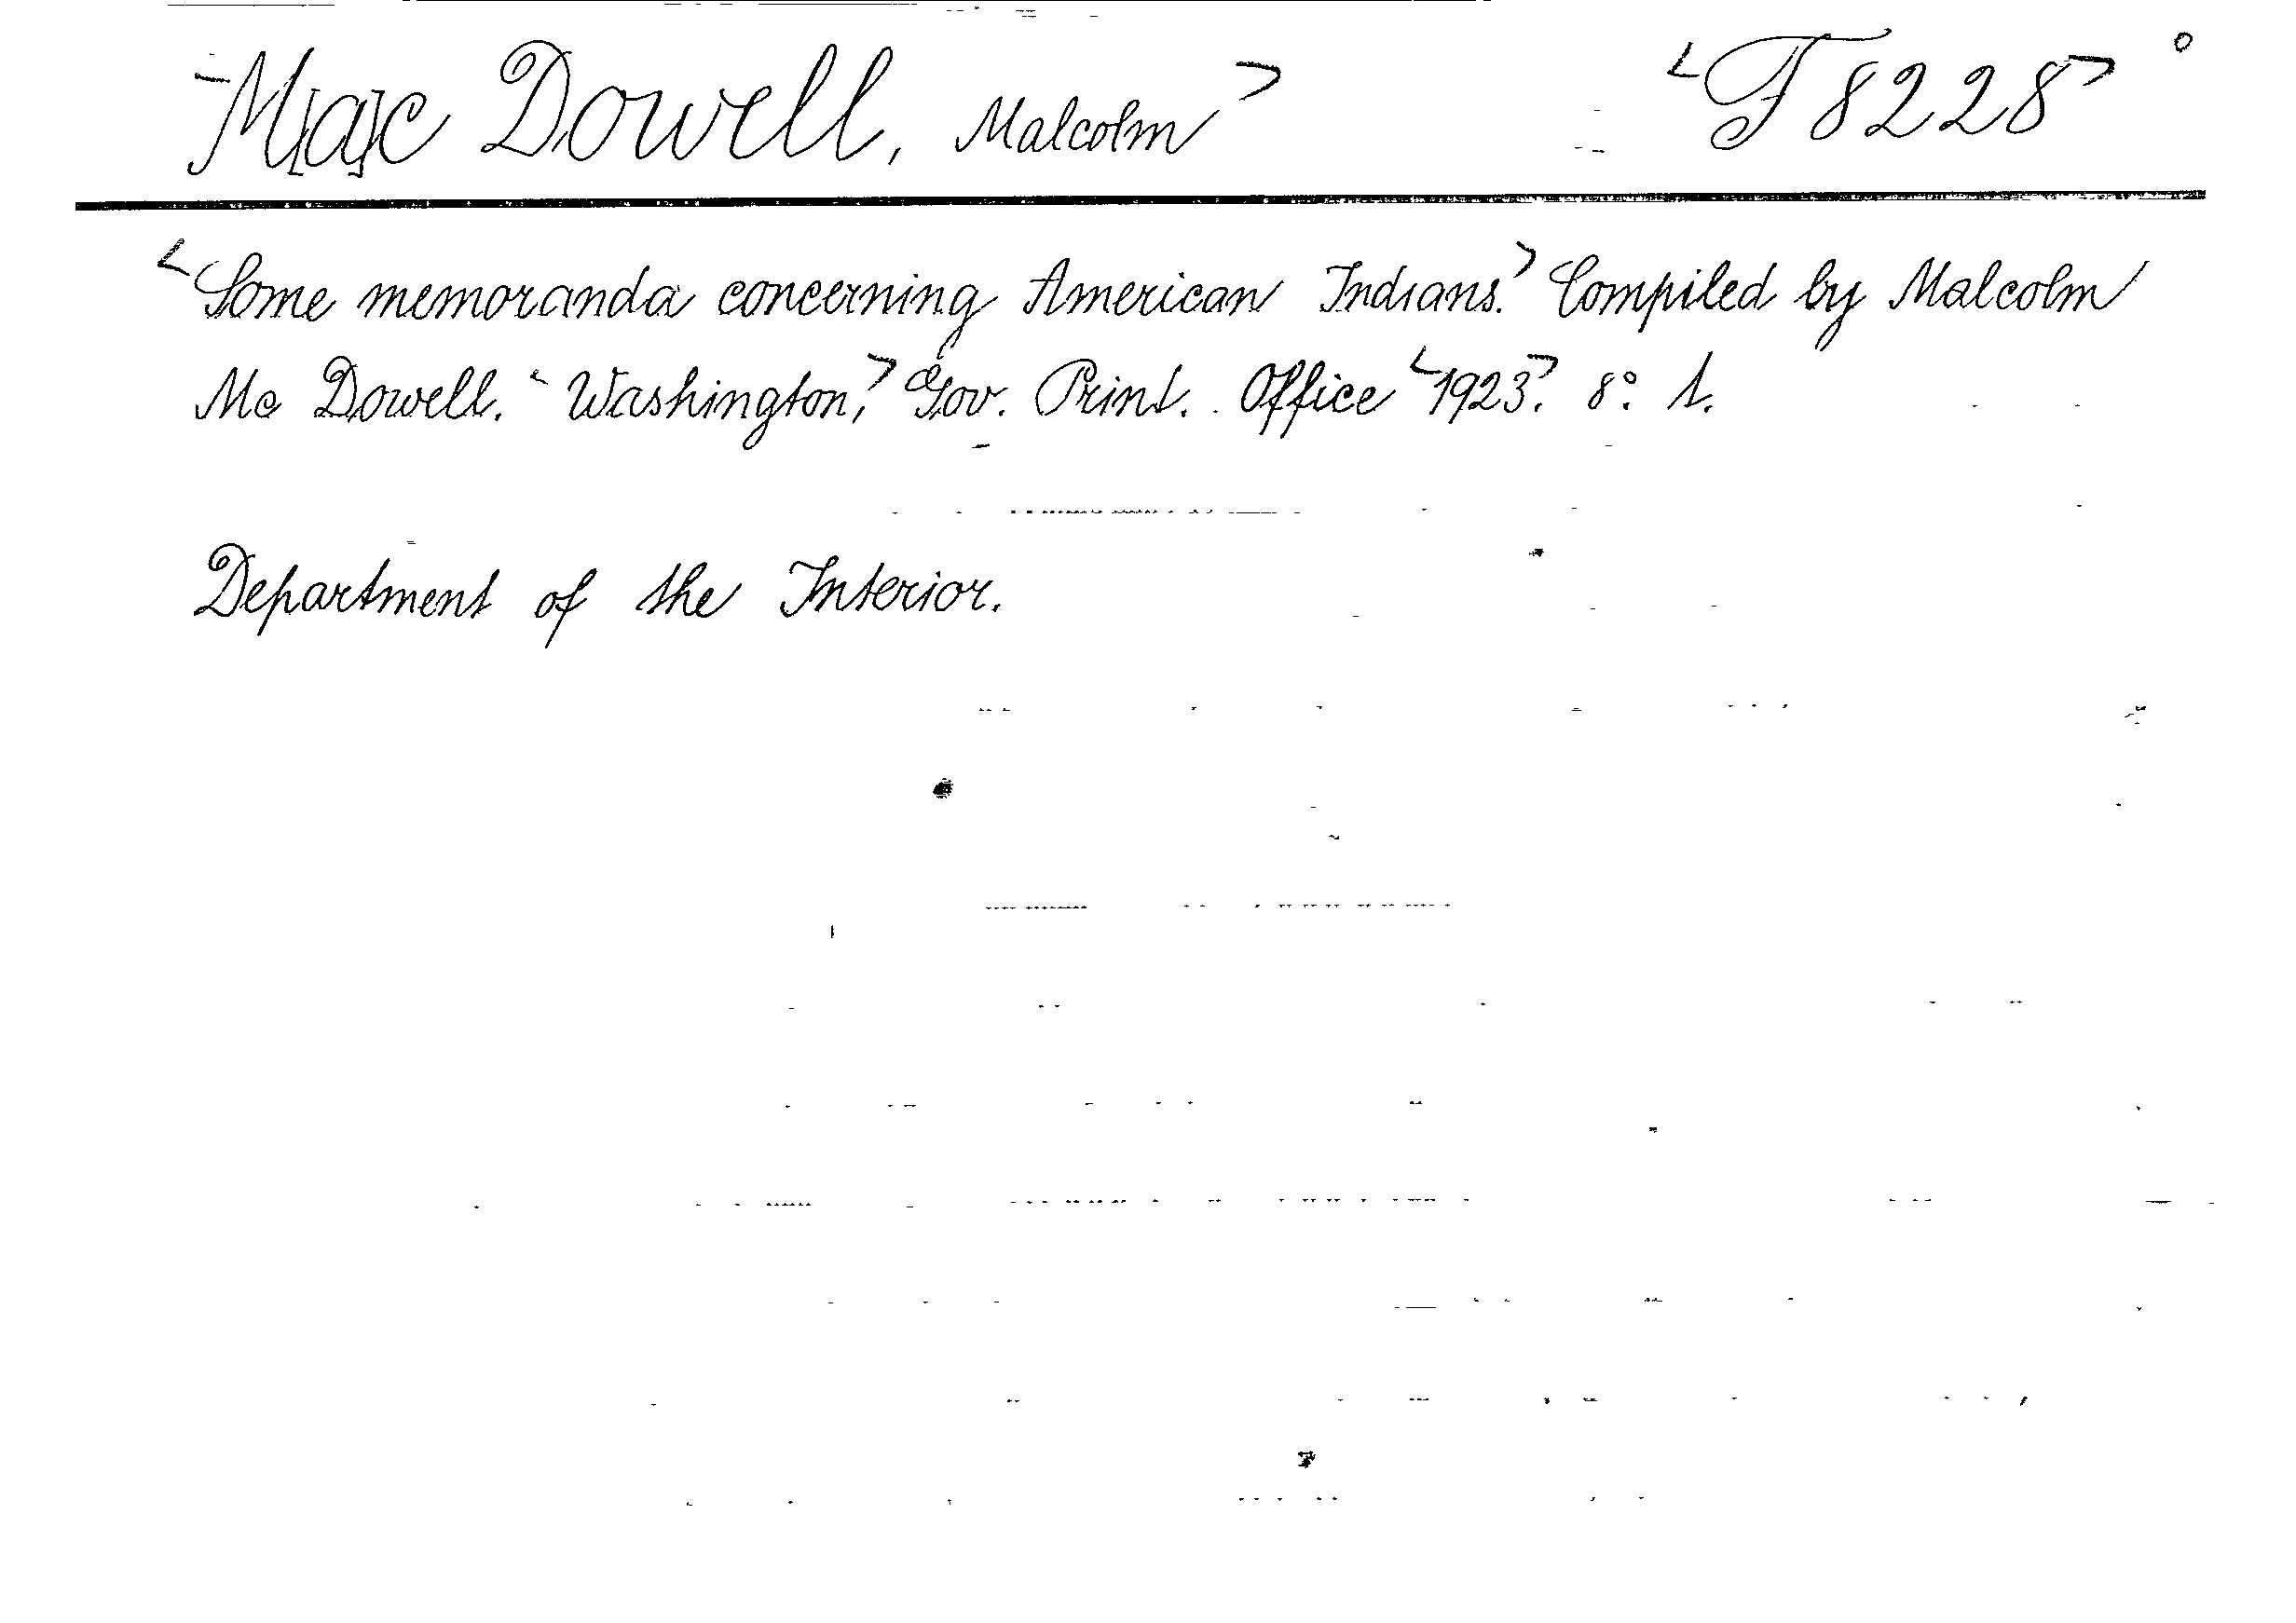 M[a]c Dowell, Malcolm> <F 8228> °
<Some memoranda concerning American Indians.> Compiled by Malcolm
Mc Dowell. <Washington,> Gov. Print. Office <1923>. 8°.
Department of the Interior.